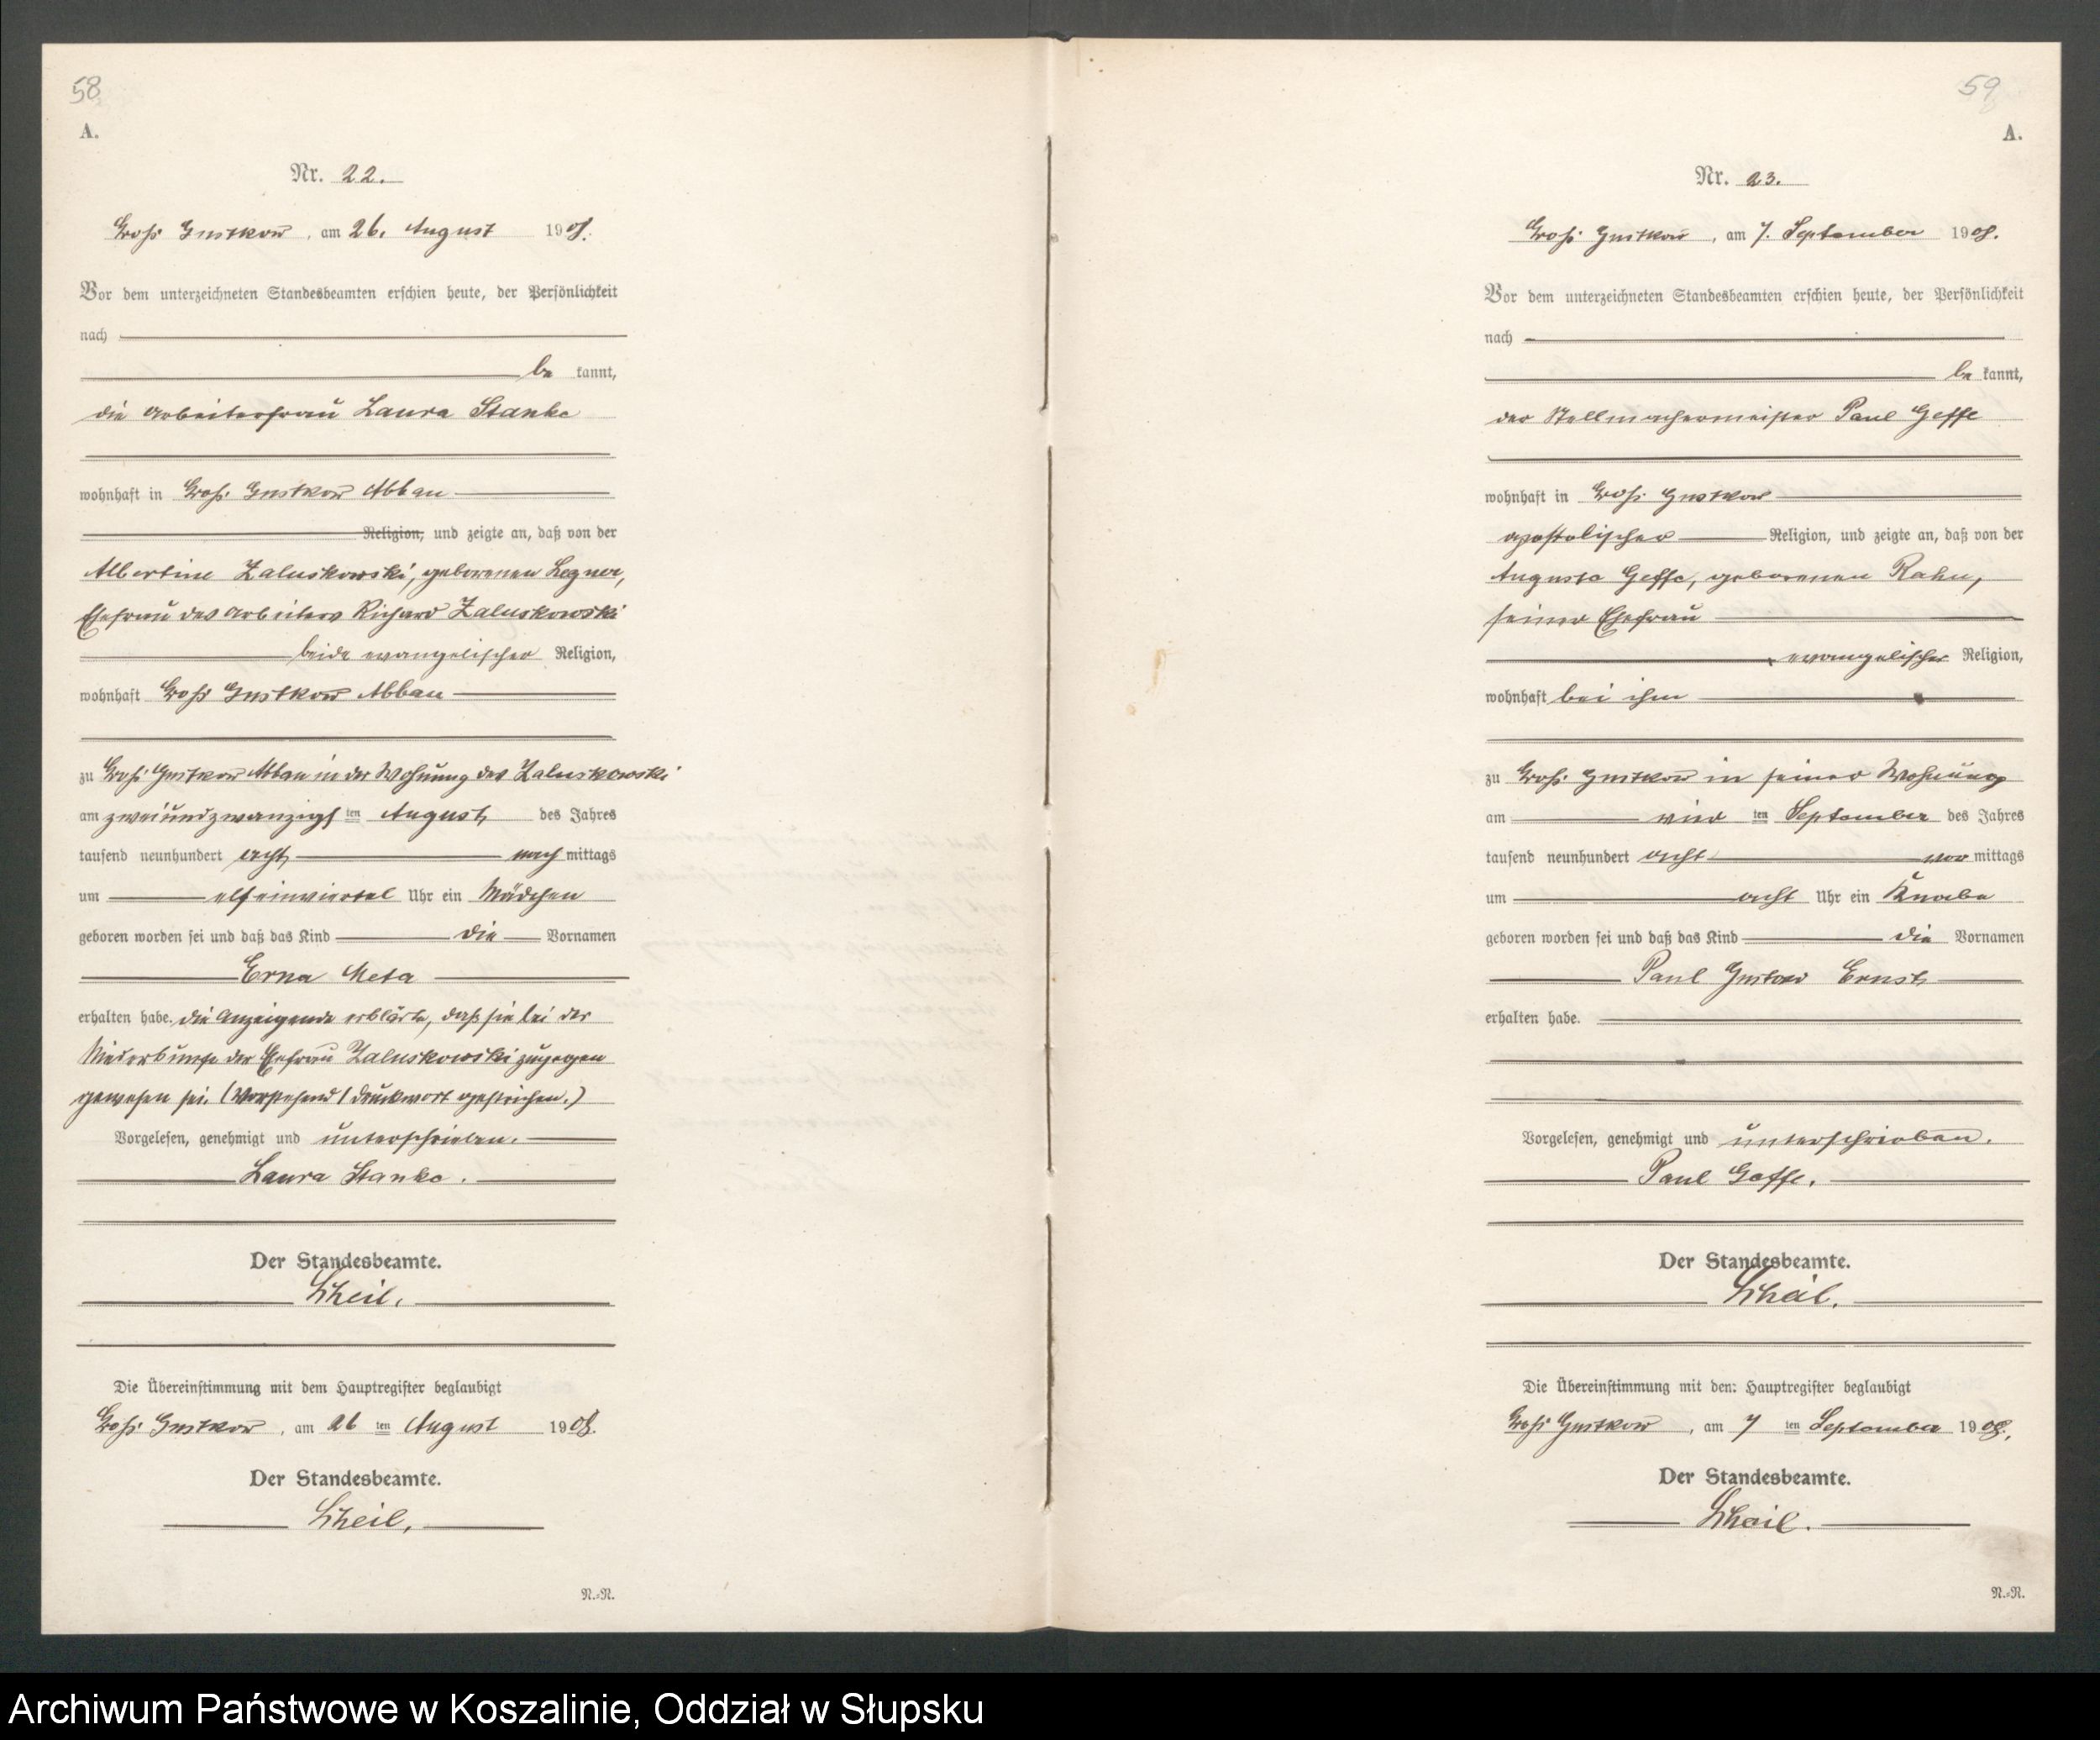 58
A.
Nr. 22.
Groß Gustkow, am 26. August 1908.
Vor dem unterzeichneten Standesbeamten erschien heute, der Persönlichkeit
nach
be kannt,
die Arbeiterfrau Laura Stanke
wohnhaft in Groß Gustkow Abbau
Religion, und zeigte an, daß von der
Albertine Zaluskowski, geborenen Legner,
Ehefrau des Arbeiters Richard Zaluskowski
beide evangelischer Religion,
wohnhaft Groß Gustkow Abbau
zu Groß Gustkow Abbau in der Wohnung des Zaluskowski
am zweiundzwanzigsten August des Jahres
tausend neunhundert acht nach mittags
um elfeinviertel Uhr ein Mädchen
geboren worden sei und daß das Kind die Vornamen
Erna Meta
erhalten habe. Die Anzeigende erklärte, daß sie bei der
Niederkunft der Ehefrau Zaluskowski zugegen
gewesen sei. (Vorstehend 1 Druckwort gestrichen.)
Vorgelesen, genehmigt und unterschrieben.
Laura Stanke.
Der Standesbeamte.
Scheil.
Die Übereinstimmung mit dem Hauptregister beglaubigt
Groß Gustkow, am 26 ten August 1908.
Der Standesbeamte.
Scheil.
N.=N.
59
A.
Nr. 23.
Groß Gustkow, am 7. September 1908.
Vor dem unterzeichneten Standesbeamten erschien heute, der Persönlichkeit
nach
be kannt,
der Stellmachermeister Paul Geffe
wohnhaft in Groß Gustkow
apostolischer Religion, und zeigte an, daß von der
Auguste Geffe, geborenen Rahn,
seiner Ehefrau
evangelischer Religion,
wohnhaft bei ihm
zu Groß Gustkow in seiner Wohnung
am vier ten September des Jahres
tausend neunhundert acht vor mittags
um acht Uhr ein Knabe
geboren worden sei und daß das Kind die Vornamen
Paul Gustav Ernst
erhalten habe.
Vorgelesen, genehmigt und unterschrieben.
Paul Geffe.
Der Standesbeamte.
Scheil.
Die Übereinstimmung mit dem Hauptregister beglaubigt
Groß Gustkow, am 7 ten September 1908.
Der Standesbeamte.
Scheil.
N.=N.
Archiwum Państwowe w Koszalinie, Oddział w Słupsku